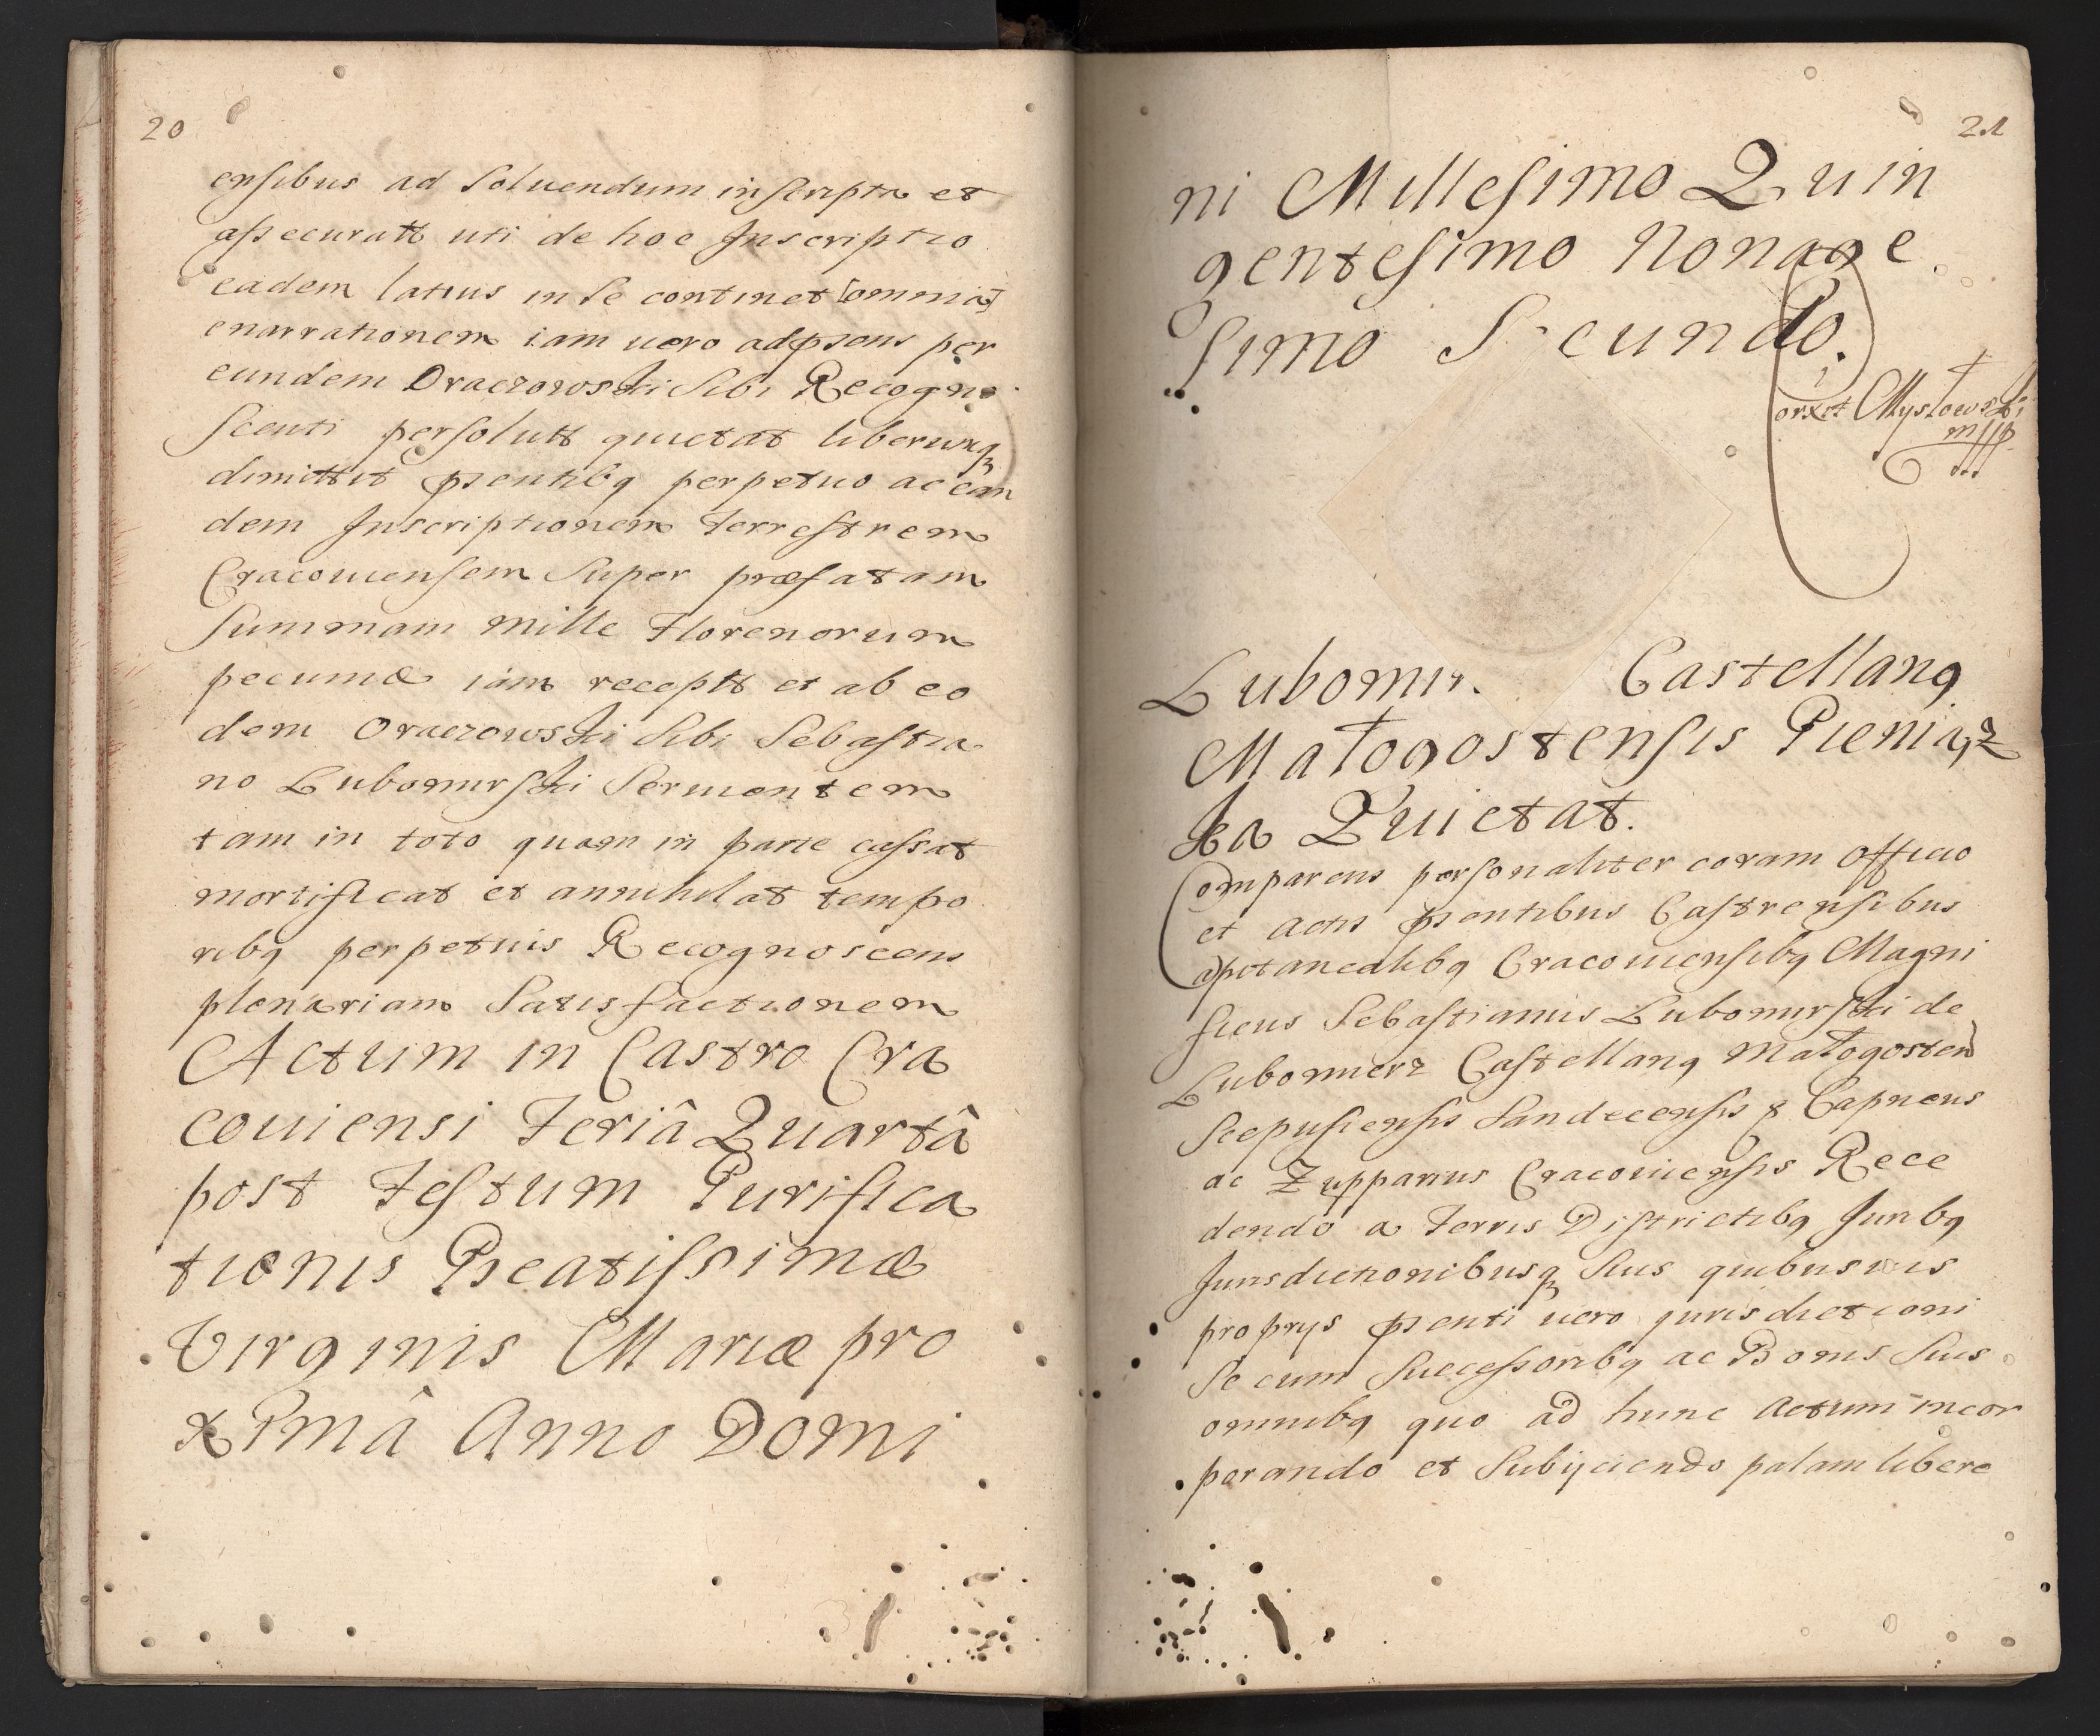 20
ensibus ad Soluendum inscripta et
assecuratt uti de hoc Inscriptio
eadem latius in Se continet [omnia]
enarrationem iam uero adpsens per
eundem Oraczowski Sibi Recogno
Scenti persolutt quietat liberumq
dimittit psentibq perpetuo ac ean
dem Inscriptionem Terrestrem
Cracouiensem Super præfatam
Summam Mille Florenorum
pecuniæ iam receptt et ab eo
dem Oraczowski Sibi Sebastia
no Lubomirski Seruientem
tam in toto quam in parte cassat
mortificat et annihilat tempo
ribq perpetuis Recognoscens
plenariam Satisfactionem
Actum in Castro Cra
couiensi Feriâ Quartâ
post Festum Purifica
tionis Beatissimæ
Virginis Mariæ pro
xImâ Anno Domi
21
ni Millesimo Quin
gentesimo Nonage
Simo Secundo.
orxit Mysłowski
mpp
Lubomir. Castellanq
Małogostensis Pieniąz
ka Quietat.
Comparens personaliter coram Officio
et Actis psentibus Castrensibus
apitanealibq Cracouiensibq Magni
ficus Sebastianus Lubomirski de
Lubomierz Castellanq Małogosten
Scepusiensis Sandecensis & Capneus
ac Zupparius Cracouiensis Rece
dendo a Terris Districtibq Juribq
Jurisdictionibusq Suis quibusuis
proprys psenti uero jurisdictioni
Se cum Successoribq ac Bonis Suis
omnibq quo ad hunc Actum incor
porando et Subijciendo palam libere